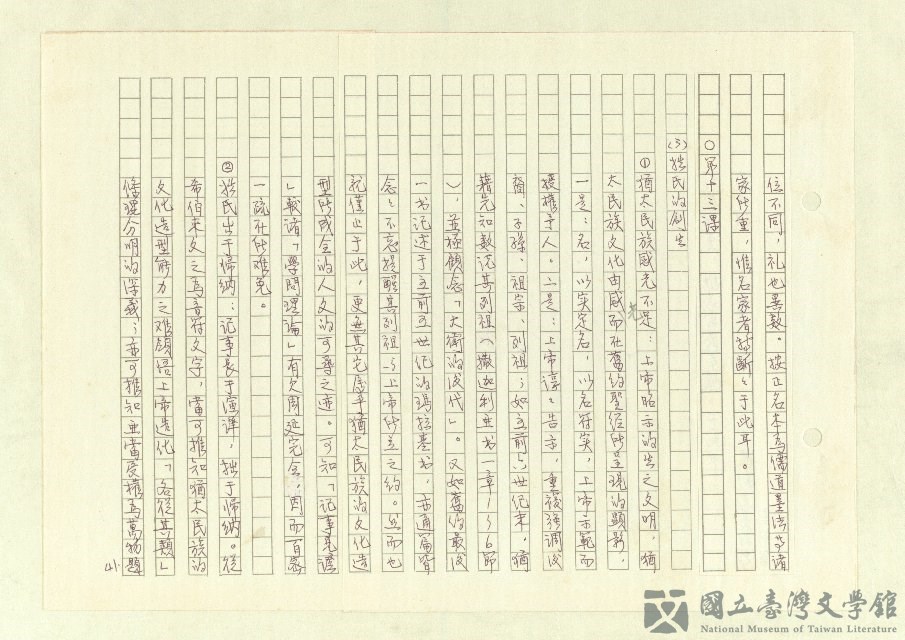 位不同，礼也異数。按正名本為儒道墨法等諸
家所重，惟名家者特斷斷于此耳。
○第十三課
(3)猶民的創生
①猶太民族感光不是：上帝昭示的告之文明。猶
太民族文化由感而在舊約聖經所呈現的顯影，
一是：名，以实定名，以名符实，上帝示範而
授権予人。二是：上帝諄諄告示，重複強調後
裔、子孫、祖宗、列祖；如主前六世紀末，猶
藉先知数说其列祖（撒迦利亜书一章1～6節
），並極傾念「大衛的後代」。又如舊約最後
一书记述于主前五世纪的瑪拉基书，亦通篇皆
念念不忘提醒其列祖与上帝所立之约。然而也
就僅止于此，更無其它憑乎猶太民族的文化造
型所成全的人文的可尋之迹。可知「记事見
」較诸「學問理論」有欠周延完全，因而百密
一疏在所难免。
②猶民出于帰纳：记事長于演譯，拙于帰纳。從
希伯来文之為音符文字，當可推知猶太民族的
文化造型能力之难領悟上帝造化「各從其類」
條理分明的深義；亦可推知亜當受権為萬物題
41.
國立臺灣文學館
National Museum of Taiwan Literature